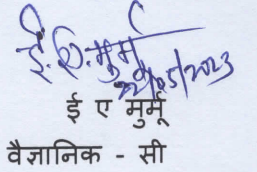 ई.ए.मुर्मू
22/05/2023
ई ए मुर्मू
वैज्ञानिक - सी